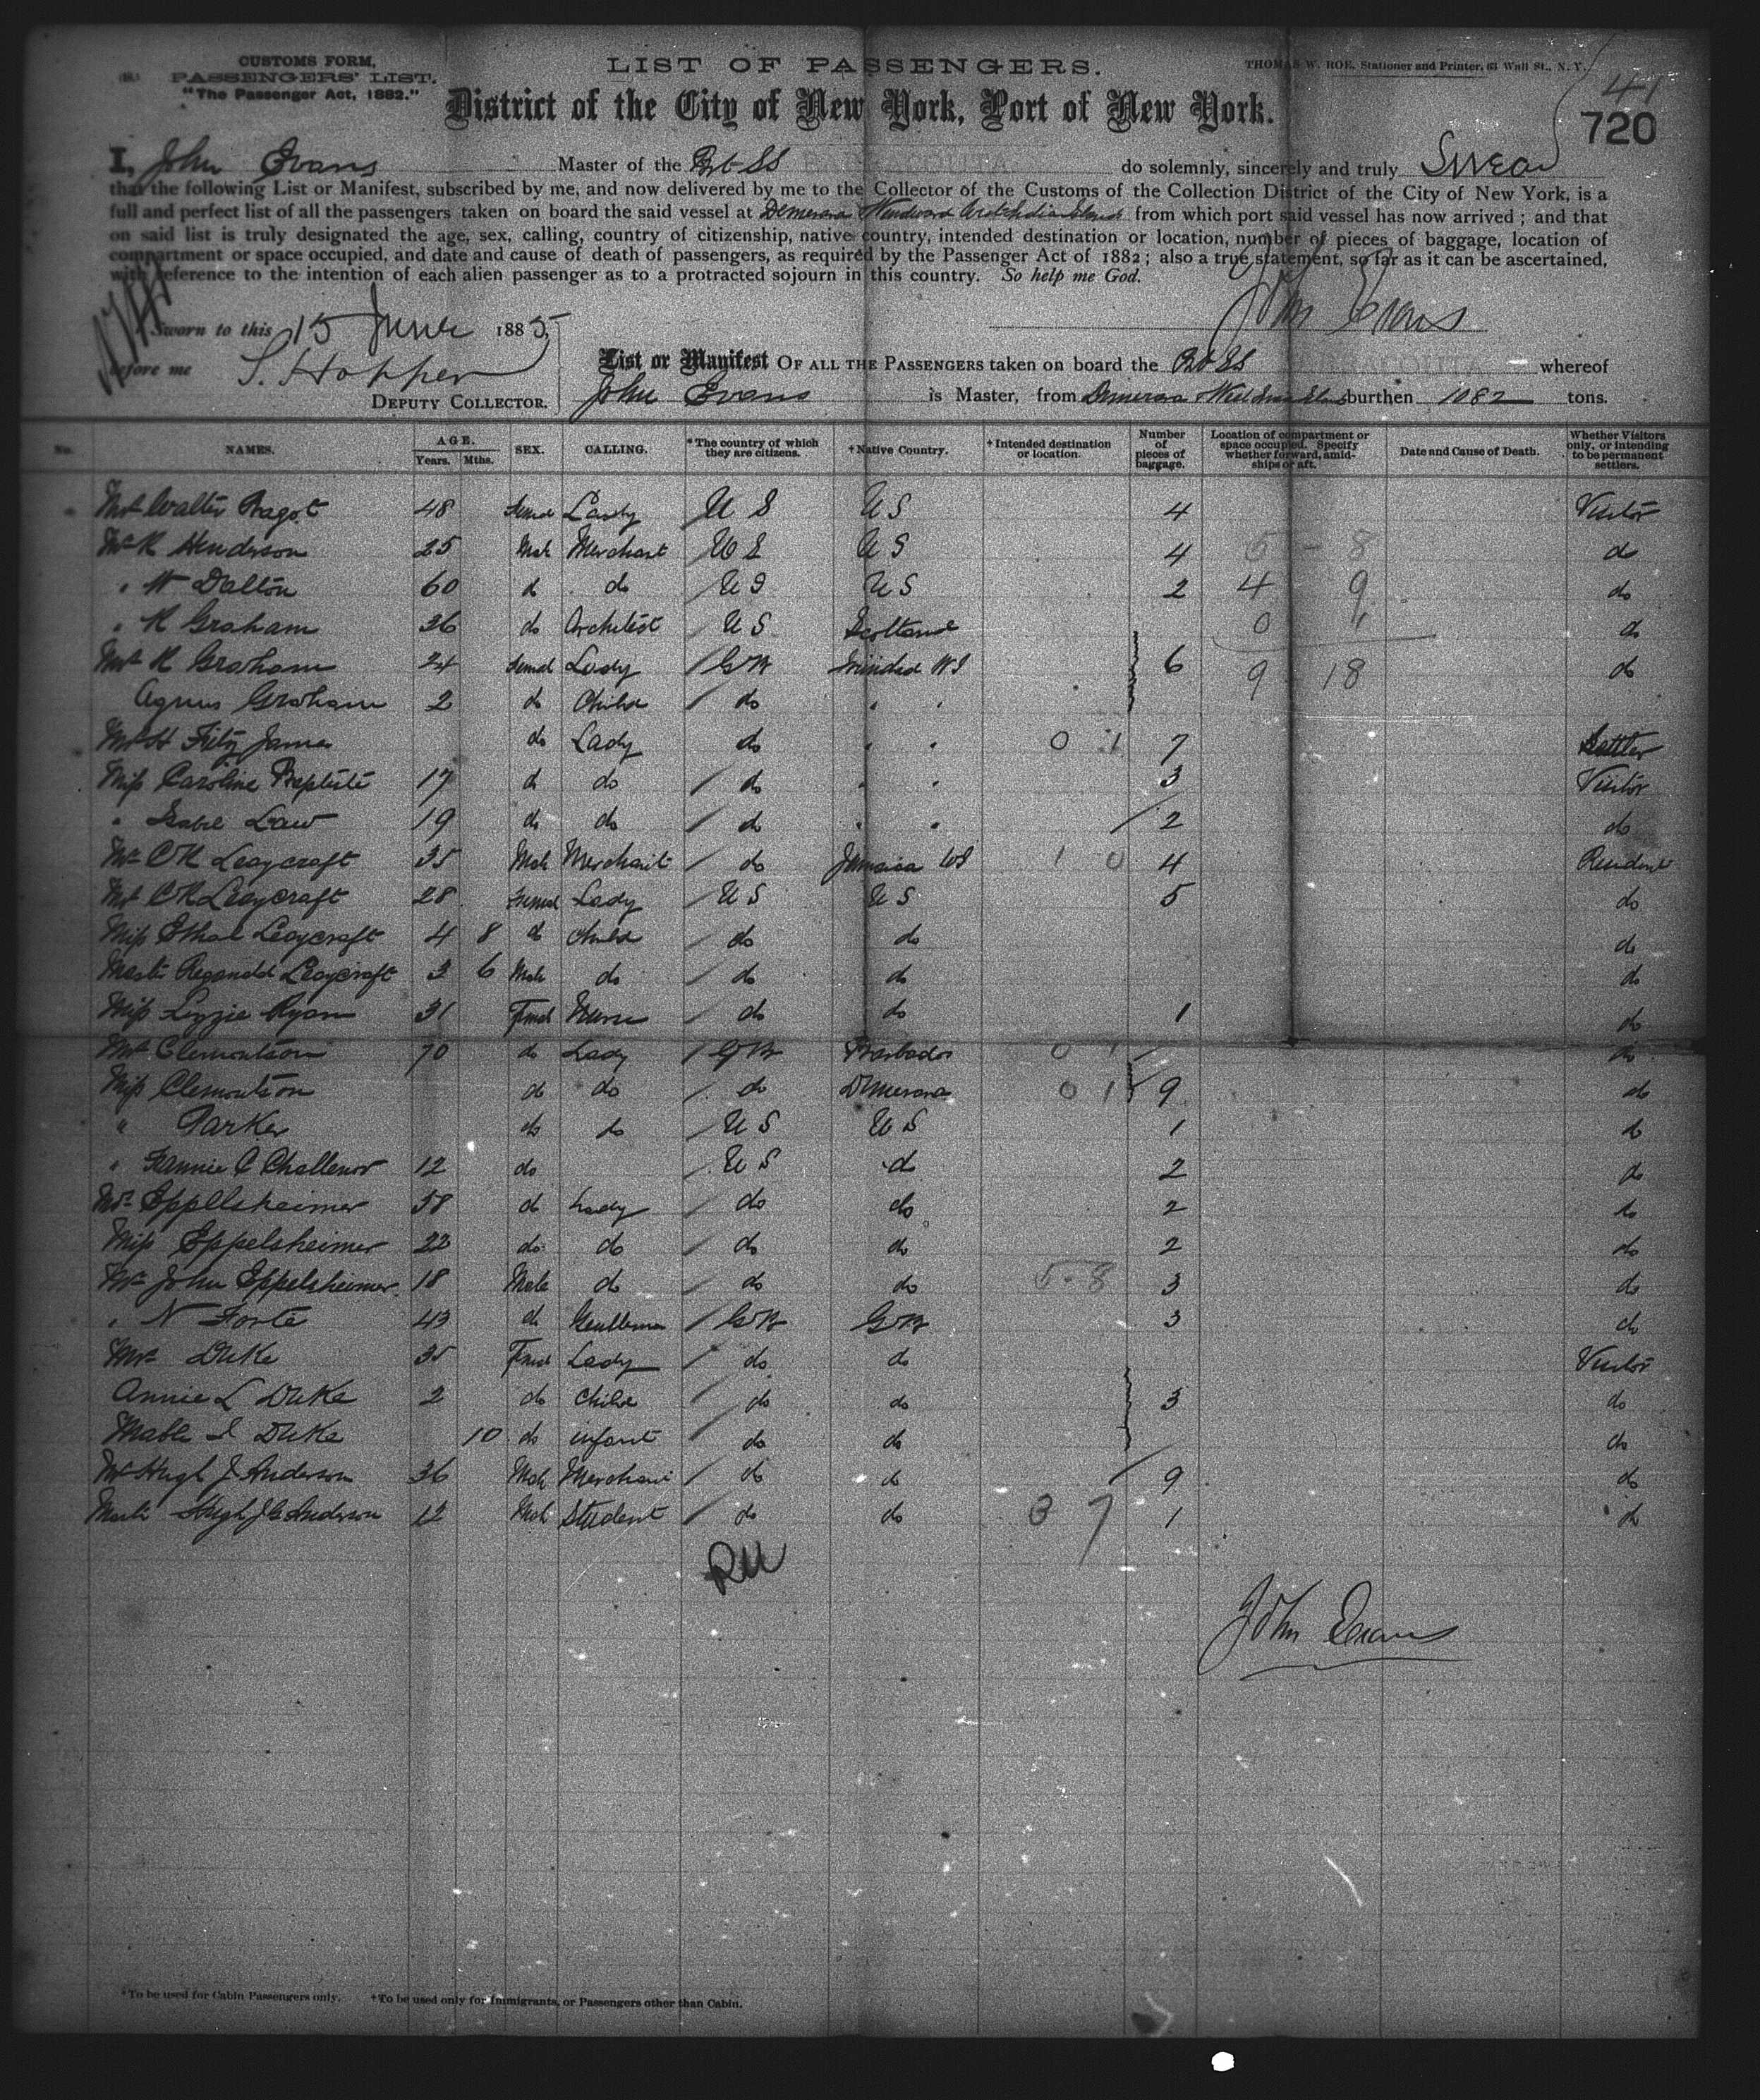 CUSTOMS FORM,
PASSENGERS' LIST.
"The Passenger Act, 1882."
LIST OF PASSENGERS.
THOMAS W. ROE, Stationer and Printer, 63 Wall St., N. Y.
41
720
District of the City of New York, Port of New York.
I, John Evans Master of the Brit SS do solemnly, sincerely and truly Swear
that the following List or Manifest, subscribed by me, and now delivered by me to the Collector of the Customs of the Collection District of the City of New York, is a
full and perfect list of all the passengers taken on board the said vessel at Demerara Windward West India Islands from which port said vessel has now arrived; and that
on said list is truly designated the age, sex, calling, country of citizenship, native country, intended destination or location, number of pieces of baggage, location of
compartment or space occupied, and date and cause of death of passengers, as required by the Passenger Act of 1882; also a true statement, so far as it can be ascertained,
with reference to the intention of each alien passenger as to a protracted sojourn in this country. So help me God.
John Evans
Sworn to this 15 June 1885
before me S. Hopper
DEPUTY COLLECTOR.
List or Manifest OF ALL THE PASSENGERS taken on board the Brt SS whereof
John Evans is Master, from Demerara West India Islands burthen 1082 tons.
No. NAMES. AGE. Years. Mths. SEX. CALLING. *The country of which they are citizens. †Native Country. †Intended destination or location. Number of pieces of baggage. Location of compartment or space occupied. Specify whether forward, amidships or aft. Date and Cause of Death. Whether Visitors only, or intending to be permanent settlers.
Mrs Walter Bagot 48 Femal Lady U S U S 4 Visitor
Mr R Henderson 25 Male Merchant U S U S 4 5 - 8 do
" W Dalton 60 do do U S U S 2 4 9 do
" R Graham 36 do Architect U S Scotland 0 1 do
Mrs R Graham 24 Femal Lady G B Trinidad W I 6 9 18 do
Agnes Graham 2 do Child do " "
Mrs H Fitz James do Lady do " " 0 1 7 Settler
Miss Caroline Baptiste 17 do do do " " 3 Visitor
" Isabel Law 19 do do do " " 2 do
Mr C R Leaycraft 35 Male Merchant do Jamaica W I 1 0 4 Resident
Mrs C R Leaycraft 28 Femal Lady U S U S 5 do
Miss Ethel Leaycraft 4 8 do Child do do do
Mastr Reganald Leaycraft 3 6 Male do do do do
Miss Lizzie Ryan 31 Femal Nurse do do 1 do
Mrs Clementson 70 do Lady G B Barbados 0 1 do
Miss Clementson do do do Demerara 0 1 9 do
" Parker do do U S U S 1 do
" Fannie C Challenor 12 do U S do 2 do
Mrs Eppelsheimer 58 do Lady do do 2 do
Miss Eppelsheimer 22 do do do do 2 do
Mr John Eppelsheimer 18 Male do do do 5 - 8 3 do
" N Forte 43 do Gentleman G B G B 3 do
Mrs Duke 35 Femal Lady do do Visitor
Annie L Duke 2 do Child do do 3 do
Mable I Duke 10 do infant do do do
Mr Hugh J Anderson 36 Male Merchant do do 9 do
Mastr Hugh J G Anderson 12 Male Student do do 3 7 1 do
John Evans
*To be used for Cabin Passengers only. †To be used only for Immigrants, or Passengers other than Cabin.